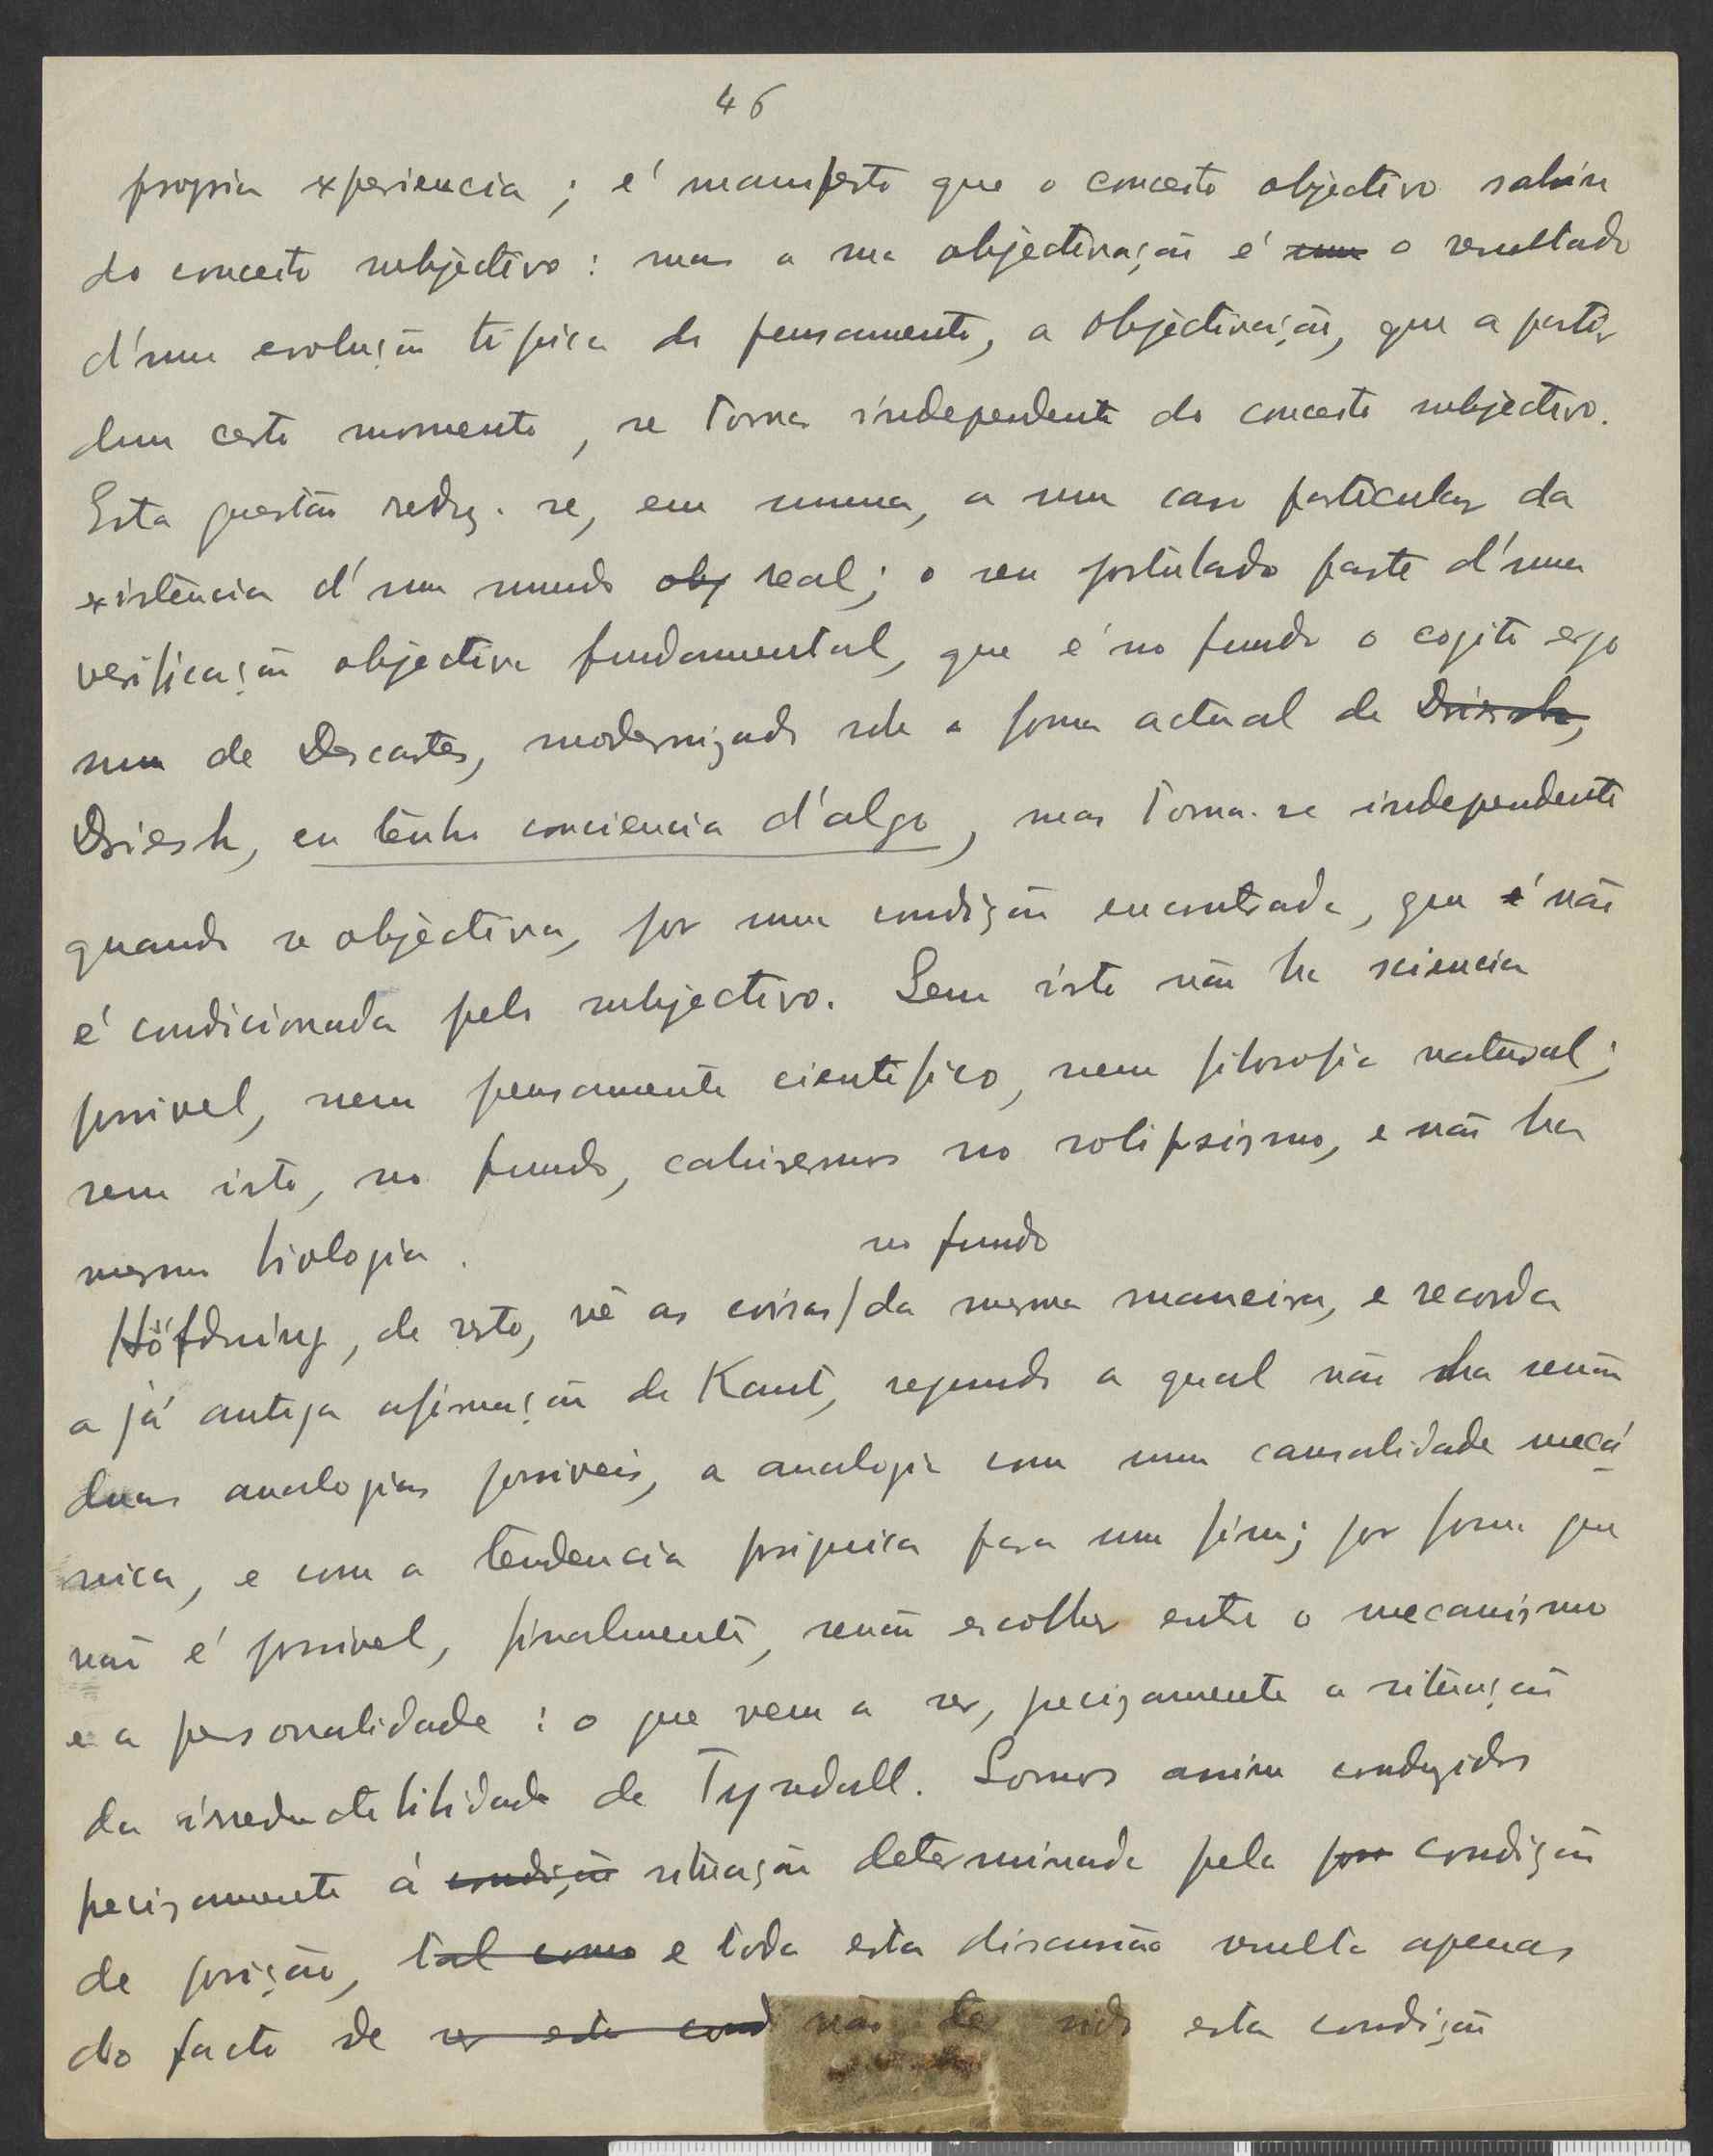 46
propria experiencia; é manifesto que o conceito objectivo sahiu
do conceito subjectivo: mas a sua objectivação é ~~uma~~ o resultado
d'uma evolução tipica do pensamento, a objectivação, que a partir
dum certo momento, se torna independente do conceito subjectivo.
Esta questão reduz-se, em suma, a um caso particular da
existencia d'um mundo ~~obj~~ real; o seu postulado parte d'uma
verificação objectiva fundamental, que é no fundo o cogito ergo
sum de Descartes, modernizado sob a forma actual de ~~Driesch,~~
Driesh, eu tenho conciencia d'algo, mas torna-se independente
quando se objectiva, por uma condição encontrada, que ~~é~~ não
é condicionada pelo subjectivo. Sem isto não ha sciencia
possivel, nem pensamento cientifico, nem filosofia natural;
sem isto, no fundo, cahiremos no solipsismo, e não ha
mesmo biologia.
no fundo
Höfdning, de resto, vê as coisas/da mesma maneira, e recorda
a já antiga afirmação de Kant, segundo a qual não ha senão
duas analogias possiveis, a analogia com uma causalidade mecá
nica, e com a tendencia psiquica para um fim; por forma que
não é possivel, finalmente, senão escolher entre o mecanismo
e a personalidade: o que vem a ser, precizamente a situação
da irreductibilidade de Tyndall. Somos assim conduzidos
precizamente á ~~condição~~ situação determinada pela ~~pos~~ condição
de posição, ~~tal como~~ e toda esta discussão resulta apenas
do facto de ~~ser esta cond~~ não ter sido esta condição